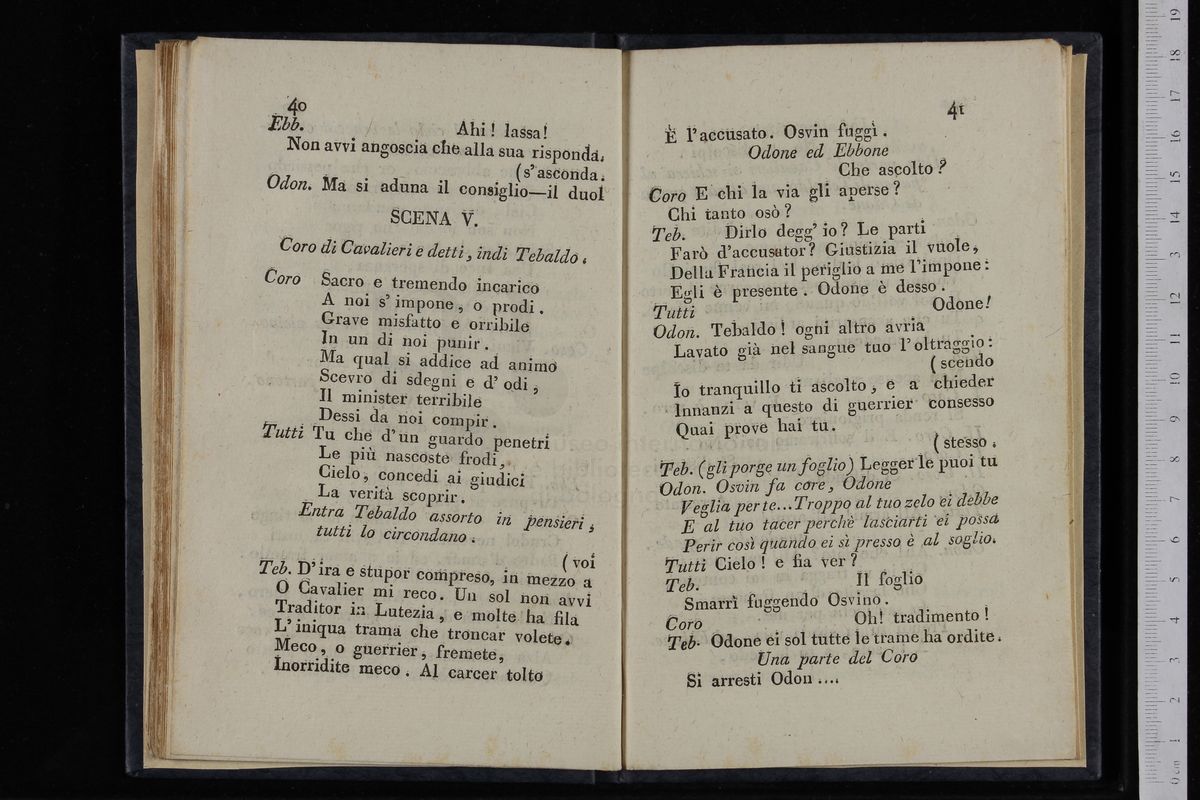 40
Ebb. Ahi! lassa!
Non avvi angoscia che alla sua risponda.
(s'asconda.
Odon. Ma si aduna il consiglio—il duol
SCENA V.
Coro di Cavalieri e detti, indi Tebaldo.
Coro Sacro e tremendo incarico
A noi s'impone, o prodi.
Grave misfatto e orribile
In un di noi punir.
Ma qual si addice ad animo
Scevro di sdegni e d'odi,
Il minister terribile
Dessi da noi compir.
Tutti Tu che d'un guardo penetri
Le più nascoste frodi,
Cielo, concedi ai giudici
La verità scoprir.
Entra Tebaldo assorto in pensieri,
tutti lo circondano.
(voi
Teb. D'ira e stupor compreso, in mezzo a
O Cavalier mi reco. Un sol non avvi
Traditor in Lutezia, e molte ha fila
L'iniqua trama che troncar volete.
Meco, o guerrier, fremete,
Inorridite meco. Al carcer tolto
41
È l'accusato. Osvin fuggì.
Odone ed Ebbone
Che ascolto?
Coro E chi la via gli aperse?
Chi tanto osò?
Teb. Dirlo degg'io? Le parti
Farò d'accusator? Giustizia il vuole,
Della Francia il periglio a me l'impone:
Egli è presente. Odone è desso.
Tutti Odone!
Odon. Tebaldo! ogni altro avria
Lavato già nel sangue tuo l'oltraggio:
(scendo
Io tranquillo ti ascolto, e a chieder
Innanzi a questo di guerrier consesso
Quai prove hai tu.
(stesso.
Teb. (gli porge un foglio) Legger le puoi tu
Odon. Osvin fa core, Odone
Veglia per te...Troppo al tuo zelo ei debbe
E al tuo tacer perchè lasciarti ei possa
Perir così quando ei sì presso è al soglio.
Tutti Cielo! e fia ver?
Teb. Il foglio
Smarrì fuggendo Osvino.
Coro Oh! tradimento!
Teb. Odone ei sol tutte le trame ha ordite.
Una parte del Coro
Si arresti Odon....